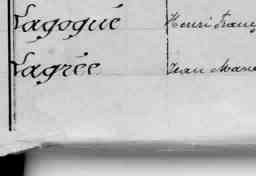 Lagogué Henri Franç
Lagrée Jean Marie